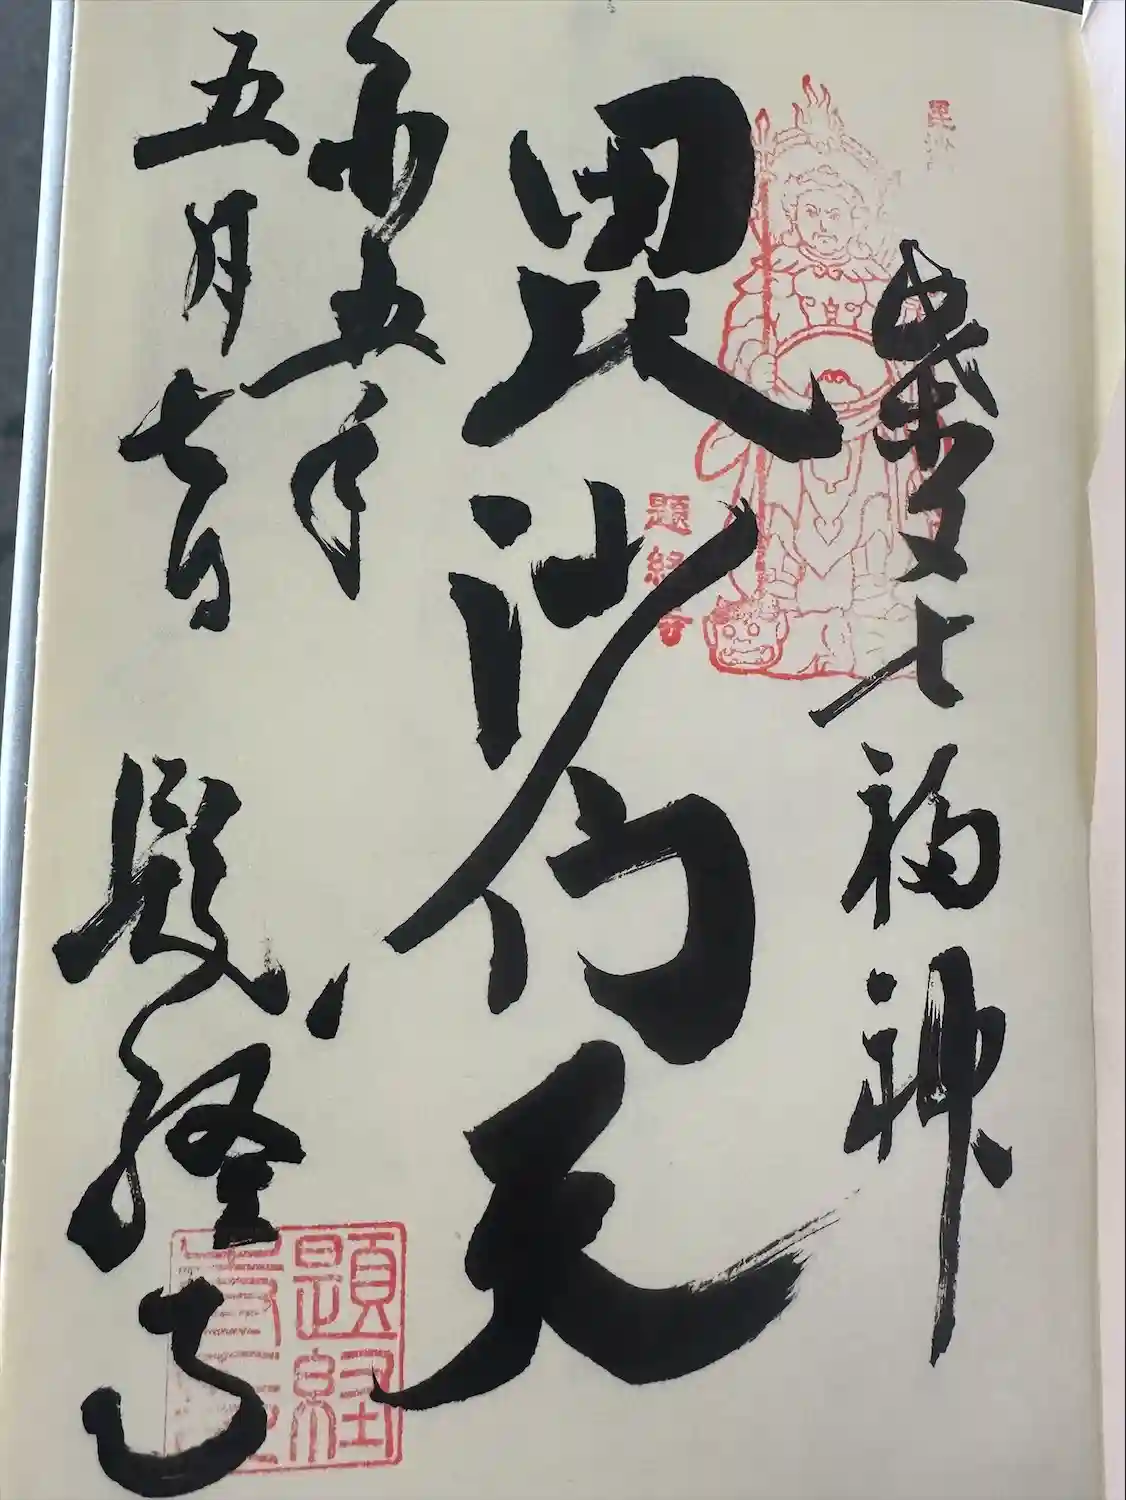 毘沙
柴又七福神
毘沙門天
題経寺
五年
五月七日
題経寺
題経